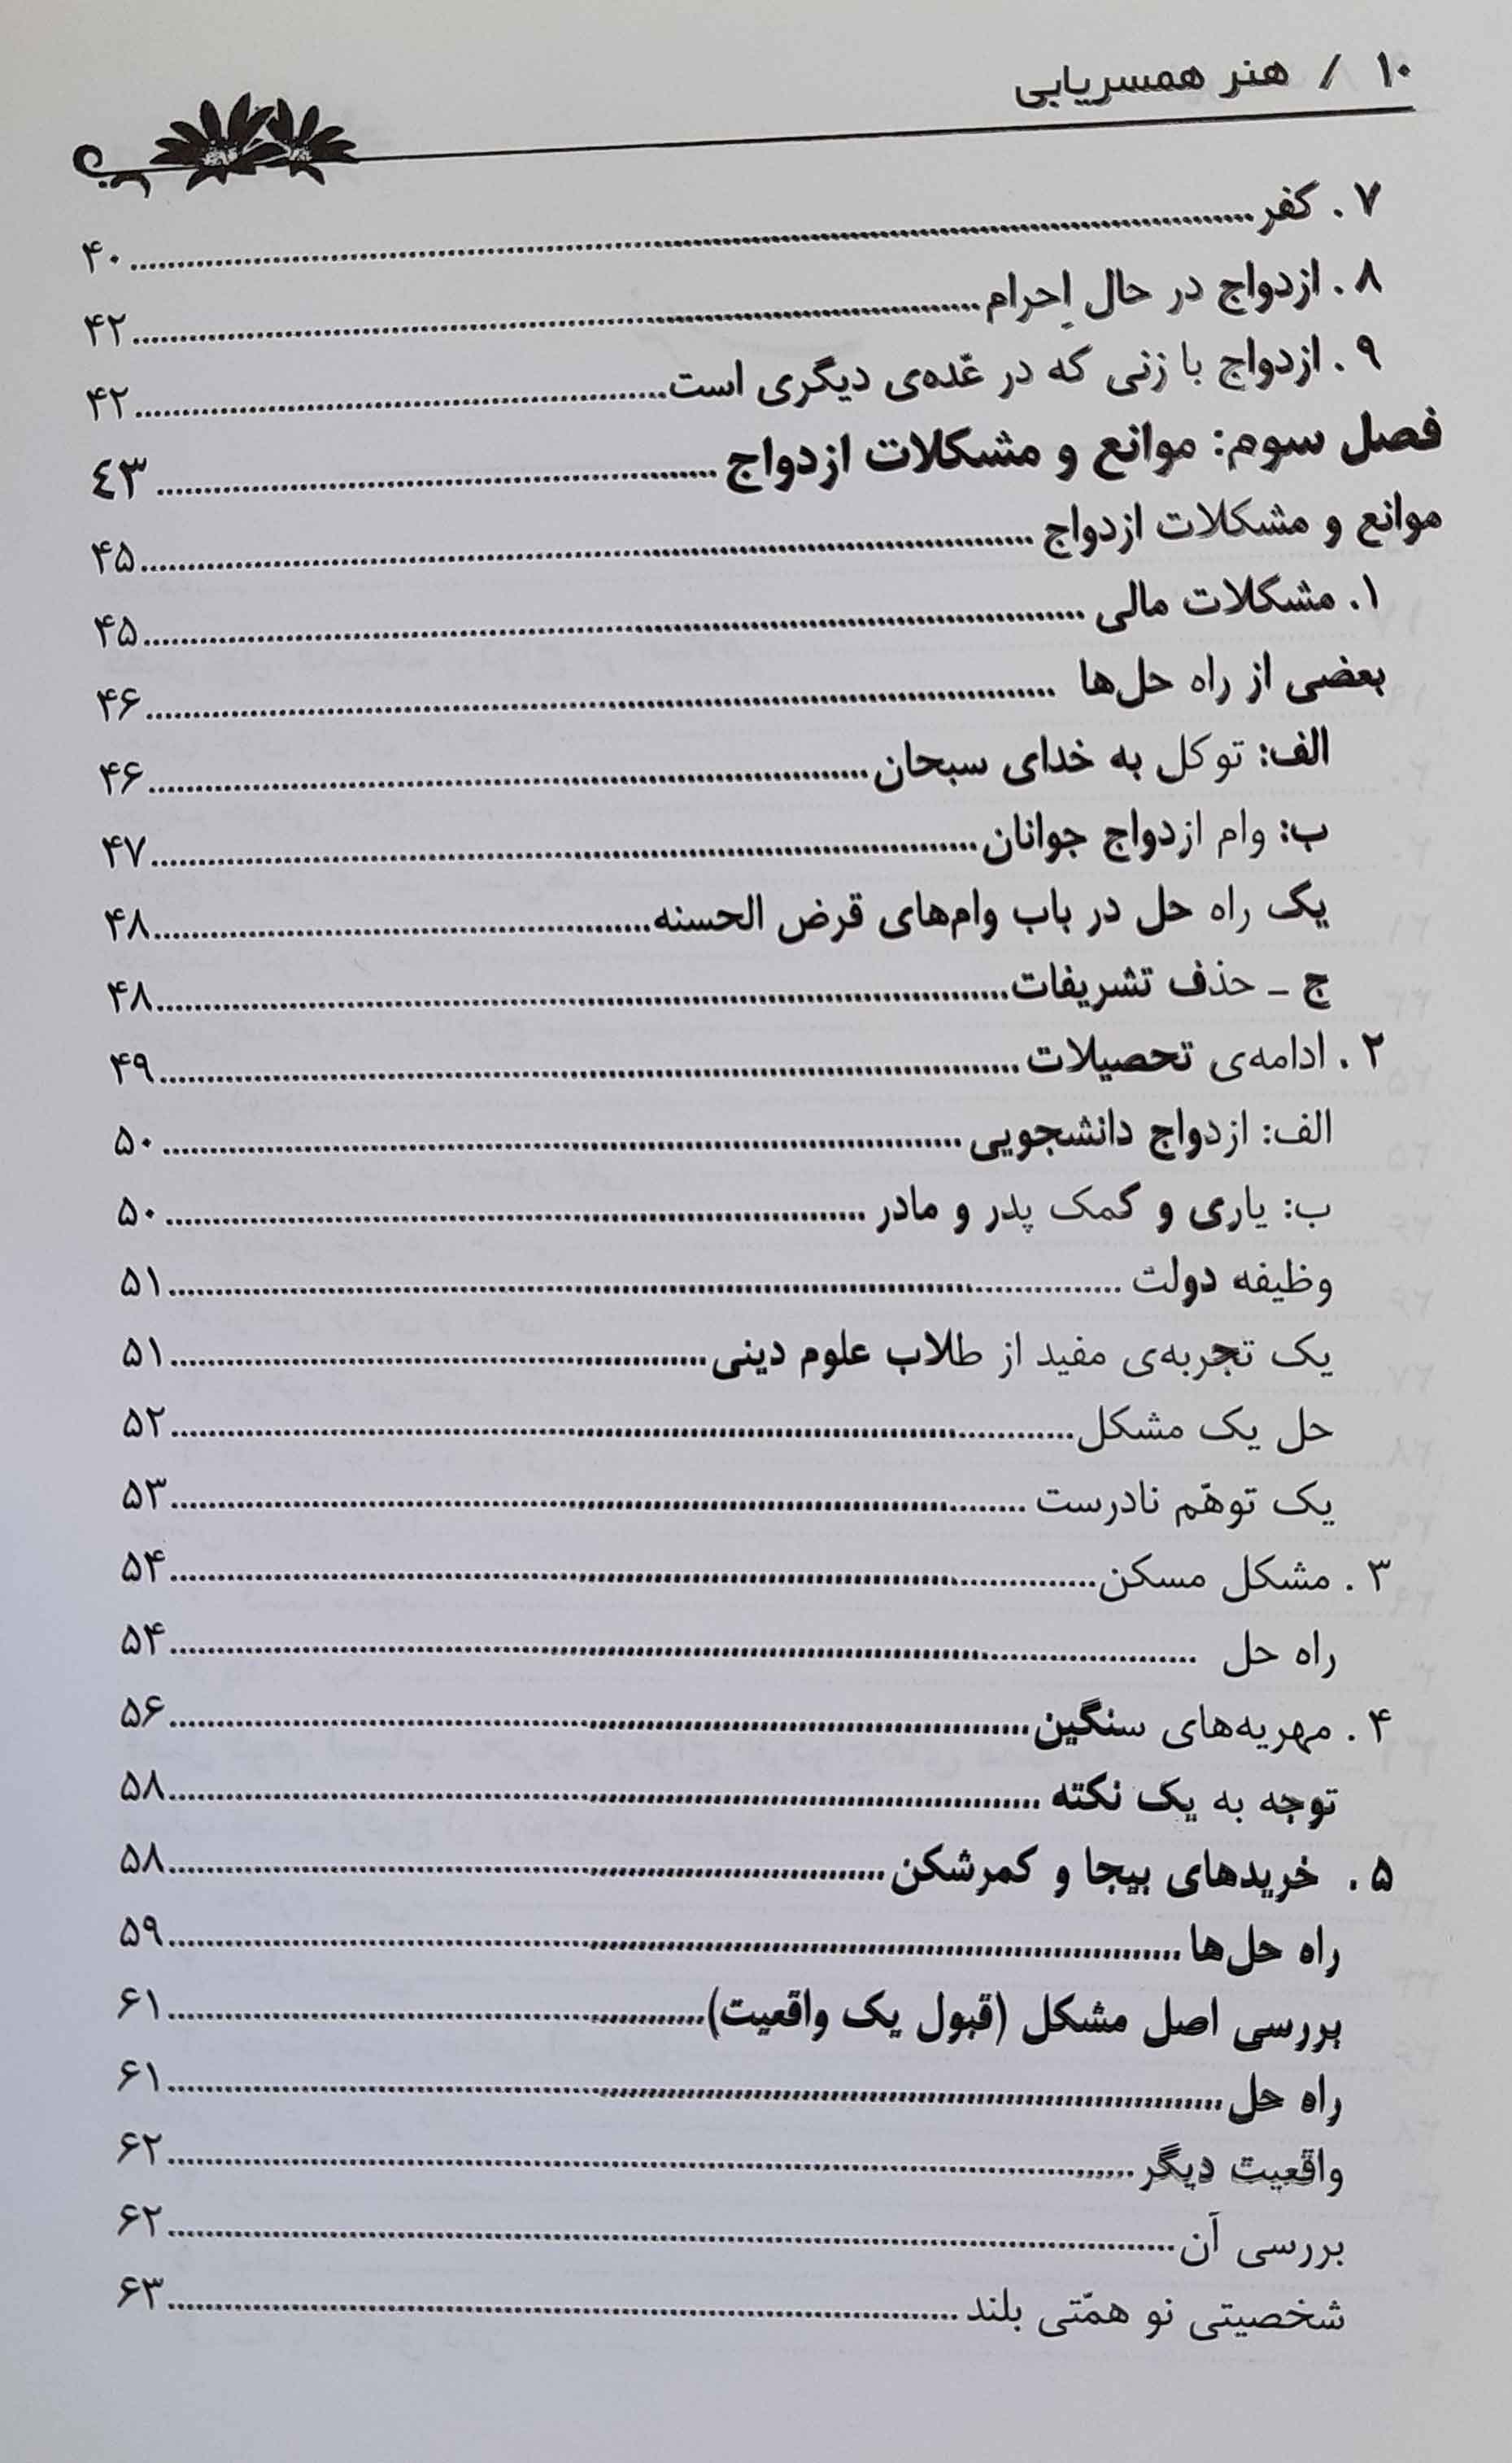 ۱۰ / هنر همسریابی
۷ . کفر ........ ۴۰
۸ . ازدواج در حال اِحرام ........ ۴۲
۹ . ازدواج با زنی که در عّده‌ی دیگری است ........ ۴۲
فصل سوم: موانع و مشکلات ازدواج ........ ٤٣
موانع و مشکلات ازدواج ........ ۴۵
۱. مشکلات مالی ........ ۴۵
بعضی از راه حل‌ها ........ ۴۶
الف: توکل به خدای سبحان ........ ۴۶
ب: وام ازدواج جوانان ........ ۴۷
یک راه حل در باب وام‌های قرض الحسنه ........ ۴۸
ج ـ حذف تشریفات ........ ۴۸
۲ . ادامه‌ی تحصیلات ........ ۴۹
الف: ازدواج دانشجویی ........ ۵۰
ب: یاری و کمک پدر و مادر ........ ۵۰
وظیفه دولت ........ ۵۱
یک تجربه‌ی مفید از طلاب علوم دینی ........ ۵۱
حل یک مشکل ........ ۵۲
یک توهّم نادرست ........ ۵۳
۳ . مشکل مسکن ........ ۵۴
راه حل ........ ۵۴
۴ . مهریه‌های سنگین ........ ۵۶
توجه به یک نکته ........ ۵۸
۵ . خریدهای بیجا و کمرشکن ........ ۵۸
راه حل‌ها ........ ۵۹
بررسی اصل مشکل (قبول یک واقعیت) ........ ۶۱
راه حل ........ ۶۱
واقعیت دیگر ........ ۶۲
بررسی آن ........ ۶۲
شخصیتی نو همّتی بلند ........ ۶۳